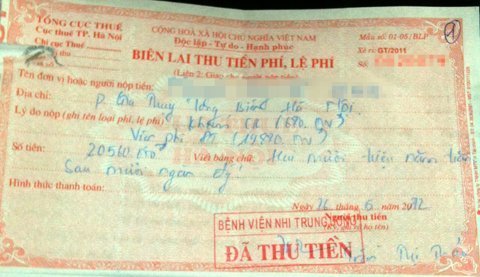 TỔNG CỤC THUẾ
Cục thuế TP. Hà Nội
Chi cục Thuế
CỘNG HOÀ XÃ HỘI CHỦ NGHĨA VIỆT NAM
Độc lập - Tự do - Hạnh phúc
Mẫu số: 01-05/BLP
Xê ri: GT/2011
Số:
①
BIÊN LAI THU TIỀN PHÍ, LỆ PHÍ
(Liên 2: Giao cho người nộp tiền)
Tên đơn vị hoặc người nộp tiền:
Địa chỉ: P. Gia Thụy Long Biên Hà Nội
Lý do nộp (ghi tên loại phí, lệ phí)
Viện phí
Số tiền: 20560 Viết bằng chữ: Hai mươi triệu năm trăm
Sáu mươi ngàn
Hình thức thanh toán:
Ngày 26 tháng 6 năm 2012
Người thu tiền
BỆNH VIỆN NHI TRUNG ƯƠNG
ĐÃ THU TIỀN